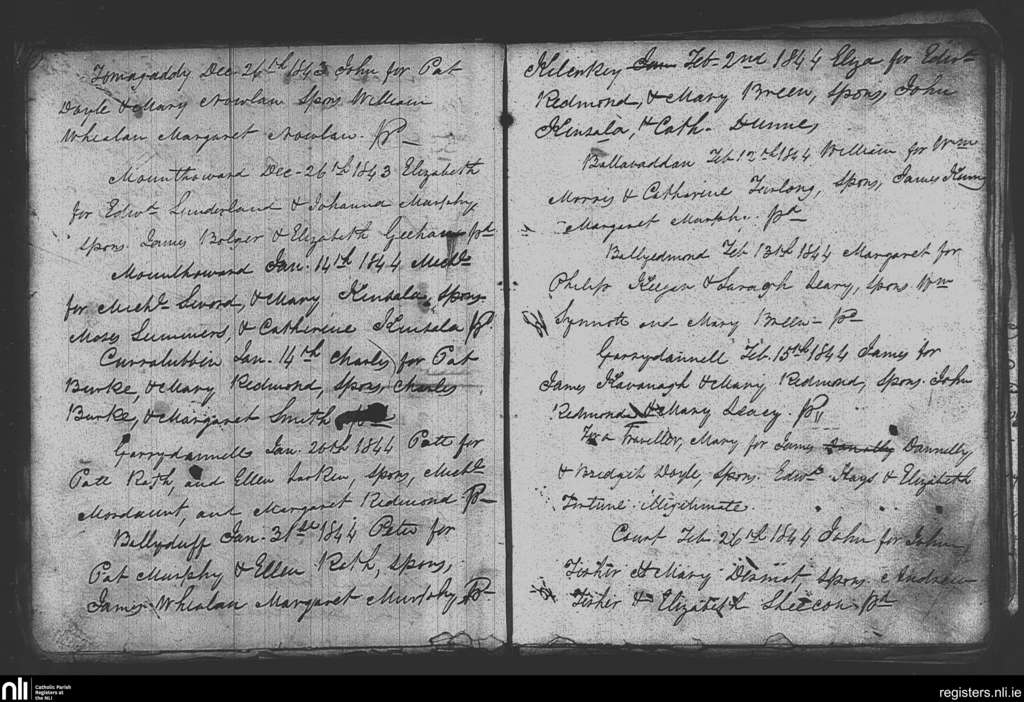 Tomagaddy Dec. 26th 1843 John for Pat
Doyle & Mary Nowlan Spons William
Whealan Margaret Nowlan. pd
Mounthoward Dec. 26th 1843 Elizabeth
for Edwd. Sunderland & Johanna Murphy
spons. James Bolger & Elizabeth Geehan pd
Mounthoward Jan. 14th 1844 Michl.
for Michl. Sword, & Mary Kinsala, spons
Moses Summers, & Catherine Kinsala pd.
Curralubben Jan. 14th Charles for Pat
Burke, & Mary Redmond, spons, Charles
Burke, & Margaret Smith
Garrydannell Jan. 26th 1844 Patt for
Patt Rath, and Ellen Larken, spons, Michl.
Mordaunt, and Margaret Redmond pd
Ballyduff Jan. 31st 1844 Peter for
Pat Murphy & Ellen Rath, spons,
James Whealan Margaret Murphy pd
Kilenkey Jan Feb 2nd 1844 Eliza for Edwd.
Redmond, & Mary Breen, spons, John
Kinsala, & Cath. Dunne,
Ballavaddan Feb 12th 1844 William for Wm
Morris & Catherine Furlong, spons, James
Margaret Murphy. pd
Ballyedmond Feb 13th 1844 Margaret for
Philip Keegan & Saragh Leary, spons Wm
Synnott and Mary Breen - pd
Garrydannell Feb. 15th 1844 James for
James Kavanagh & Mary Redmond, spons. John
Redmond & Mary Leacy. pd
For a Traveller, Mary for James Dannelly
& Bridgit Doyle, Spons. Edwd. Hays & Elizabeth
Fortune. Illigitimate.
Court Feb. 26th 1844 John for John
Fisher & Mary Dermot spons. Andrew
Fisher & Elizabeth pd
nli
Catholic Parish
Registers at
the NLI
registers.nli.ie